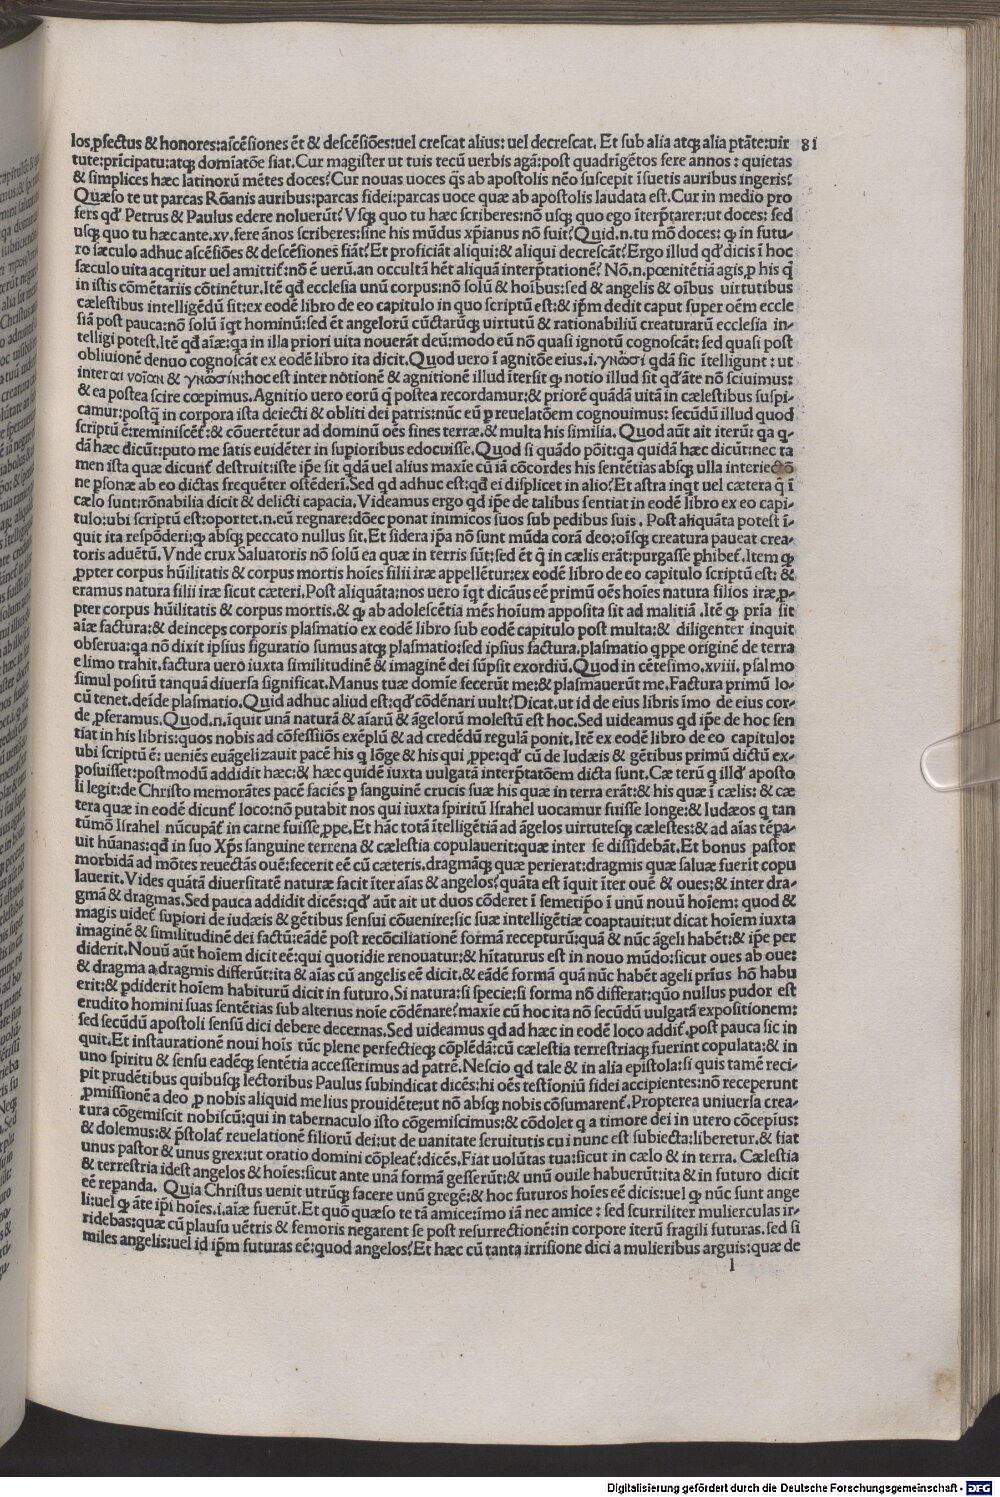 los ꝓfectus & honores:aſcẽſiones ẽt & deſcẽſiões:uel creſcat alius: uel decreſcat. Et ſub alia atq; alia ptãte:uir 81
tute:prīcipatu:atq; domīatõe fiat. Cur magiſter ut tuis tecū uerbis agã: poſt quadrigẽtos fere annos : quietas
& ſimplices hæc latinorū mẽtes doces? Cur nouas uoces q̃s ab apoſtolis nẽo ſuſcepit ĩſuetis auribus ingeris?
Quæſo te ut parcas Rõanis auribus:parcas fidei:parcas uoce quæ ab apoſtolis laudata eſt. Cur in medio pro
fers qđ Petrus & Paulus edere noluerūt? Vſq; quo tu hæc ſcriberes:nõ uſq; quo ego ĩterp̃tarer:ut doces: ſed
uſq; quo tu hæcante.xv.fere ãnos ſcriberes:ſine his mūdus xp̃ianus nõ fuit? Quid.n.tu mõ doces: ꝙ in futu-
ro ſæculo adhuc aſcẽſiões & deſcẽſiones fiãt? Et proficiãt aliqui:& aliqui decreſcãt? Ergo illud qđ dicis ĩ hoc
ſæculo uita acqritur uel amittiť:nõ ẽ uerū.an occultã hẽt aliquã interp̃tationẽ? Nõ.n.pœnitẽtiã agis ꝓ his q̃
in iſtis cõmẽtariis cõtinẽtur. Itẽ qđ eccleſia unū corpus:nõ ſolū & hoibus:ſed & angelis & oĩbus uirtutibus
cæleſtibus intelligẽdū ſit:ex eodẽ libro de eo capitulo in quo ſcriptū eſt:& ip̃m dedit caput ſuper oẽm eccle
ſiã poſt pauca:nõ ſolū ĩqt hominū:ſed ẽt angelorū cũctarūq; uirtutū & rationabiliū creaturarū eccleſia in-
telligi poteſt. Itẽ qđ aĩæ:qa in illa priori uita nouerãt deū:modo eū nõ quaſi ignotū cognoſcãt: ſed quaſi poſt
obliuionẽ denuo cognoſcãt ex eodẽ libro ita dicit. Quod uero ĩ agnitõe eius.i.γνώσι qdã ſic ĩtelligunt : ut
inter αι νοῖαν & γνῶσιν:hoc eſt inter notionẽ & agnitionẽ illud ĩterſit ꝙ notio illud ſit qđ ãte nõ ſciuimus:
& ea poſtea ſcire cœpimus. Agnitio uero eorū q̃ poſtea recordamur:& priorẽ quãdã uitã in cæleſtibus ſuſpi-
camur:poſtq̃ in corpora iſta deiecti & obliti dei patris:nūc eū ꝓ reuelatõem cognouimus: ſecūdū illud quod
ſcriptū ẽ:reminiſcẽť:& cõuertẽtur ad dominū oẽs fines terræ.& multa his ſimilia. Quod aūt ait iterū: qa q-
dã hæc dicūt:puto me ſatis euidẽter in ſupioribus edocuiſſe. Quod ſi quãdo põit:qa quidã hæc dicūt:nec ta
men iſta quæ dicunť deſtruit:iſte ip̃e ſit qdã uel alius maxĩe cū iã cõcordes his ſentẽtias abſq; ulla interiectõ
ne pſonæ ab eo dictas frequẽter oſtẽderĩ. Sed qd adhuc eſt:qđ ei diſplicet in alio? Et aſtra inqt uel cætera q̃ ĩ
cælo ſunt:rõnabilia dicit & delicti capacia. Videamus ergo qđ ip̃e de talibus ſentiat in eodẽ libro ex eo capi-
tulo:ubi ſcriptū eſt:oportet.n.eū regnare:dõec ponat inimicos ſuos ſub pedibus ſuis . Poſt aliquãta poteſt ĩ-
quit ita reſpõderi:ꝙ abſq; peccato nullus ſit. Et ſidera ip̃a nõ ſunt mūda corã deo:oĩſq; creatura paueat crea-
toris aduẽtū. Vnde crux Saluatoris nõ ſolū ea quæ in terris ſūt:ſed ẽt q̃ in cælis erãt:purgaſſe ꝓhibeť. Item ꝙ
ꝓpter corpus hūilitatis & corpus mortis hoĩes filii iræ appellẽtur:ex eodẽ libro de eo capitulo ſcriptū eſt: &
eramus natura filii iræ ſicut cæteri. Poſt aliquãta:nos uero ĩqt dicãus eẽ primū oẽs hoĩes natura filios iræ ꝓ-
pter corpus hūilitatis & corpus mortis.& ꝙ ab adoleſcẽtia mẽs hoĩum appoſita ſit ad malitiã . Itẽ ꝙ prĩa ſit
aĩæ factura:& deinceps corporis plaſmatio ex eodẽ libro ſub eodẽ capitulo poſt multa:& diligenter inquit
obſerua:qa nõ dixit ipſius figuratio ſumus atq; plaſmatio:ſed ipſius factura.plaſmatio qppe originẽ de terra
e limo trahit.factura uero iuxta ſimilitudinẽ & imaginẽ dei ſūpſit exordiū. Quod in cẽteſimo.xviii.pſalmo
ſimul poſitū tanquã diuerſa ſignificat. Manus tuæ domĩe fecerūt me:& plaſmauerūt me. Factura primū lo-
cū tenet.deĩde plaſmatio. Quid adhuc aliud eſt:qđ cõdẽnari uult? Dicat.ut id de eius libris ĩmo de eius cor-
de ꝓferamus. Quod.n.ĩquit unã naturã & aĩarū & ãgelorū moleſtū eſt hoc. Sed uideamus qđ ip̃e de hoc ſen
tiat in his libris:quos nobis ad cõfeſſiiõs exẽplū & ad credẽdū regulã ponit. Itẽ ex eodẽ libro de eo capitulo:
ubi ſcriptū ẽ: ueniẽs euãgelizauit pacẽ his q lõge & his qui ꝓpe:qđ cū de Iudæis & gẽtibus primū dictū ex-
poſuiſſet:poſtmodū addidit hæc:& hæc quidẽ iuxta uulgatã interp̃tatõem dicta ſunt. Cæ terū q illđ apoſto
li legit:de Chriſto memorãtes pacẽ faciẽs ꝓ ſanguinẽ crucis ſuæ his quæ in terra erãt:& his quæ ĩ cælis: & cæ
tera quæ in eodẽ dicunť loco:nõ putabit nos qui iuxta ſpiritū Iſrahel uocamur fuiſſe longe:& Iudæos q tan
tūmõ Iſrahel nūcupãť in carne fuiſſe ꝓpe. Et hãc totã ĩtelligẽtiã ad ãgelos uirtuteſq; cæleſtes:& ad aĩas tẽpa-
uit hūanas:qđ in ſuo Xp̃s ſanguine terrena & cæleſtia copulauerit:quæ inter ſe diſſidebãt. Et bonus paſtor
morbidã ad mõtes reuectãs ouẽ:fecerit eẽ cū cæteris.dragmãq; quæ perierat:dragmis quæ ſaluæ fuerit copu
lauerit. Vides quãtã diuerſitatẽ naturæ facit ĩter aĩas & angelos? quãta eſt ĩquit ĩter ouẽ & oues:& inter dra-
gmã & dragmas. Sed pauca addidit dicẽs:qđ aūt ait ut duos cõderet ĩ ſemetip̃o ĩ unū nouū hoĩem: quod &
magis uideť ſupiori de iudæis & gẽtibus ſenſui cõuenire:ſic ſuæ intelligẽtiæ coaptauit:ut dicat hoĩem iuxta
imaginẽ & ſimilitudinẽ dei factū:eãdẽ poſt recõciliationẽ formã recepturū:quã & nūc ãgeli habẽt:& ip̃e per
diderit. Nouū aūt hoĩem dicit eẽ:qui quotidie renouatur:& hĩtaturus eſt in nouo mūdo:ſicut oues ab oue:
& dragma a dragmis differūt:ita & aĩas cū angelis eẽ dicit.& eãdẽ formã quã nūc habẽt ageli prĩus hõ habu
erit:& ꝑdiderit hoĩem habiturū dicit in futuro. Si natura:ſi ſpecie:ſi forma nõ differat:quõ nullus pudor eſt
erudito homini ſuas ſentẽtias ſub alterius noĩe cõdẽnare? maxĩe cū hoc ita nõ ſecūdū uulgatã expoſitionem:
ſed ſecūdū apoſtoli ſenſū dici debere decernas. Sed uideamus qđ ad hæc in eodẽ loco addiť.poſt pauca ſic in
quit. Et inſtaurationẽ noui hoĩs tũc plene perfectieq; cõplẽdã:cū cæleſtia terreſtriaq; fuerint copulata:& in
uno ſpiritu & ſenſu eadẽq; ſentẽtia acceſſerimus ad patrẽ. Neſcio qđ tale & in alia epiſtola:ſi quis tamẽ reci-
pit prudẽtibus quibuſq; lectoribus Paulus ſubindicat dicẽs:hi oẽs teſtĩoniū fidei accipientes:nõ receperunt
ꝓmiſſionẽ a deo ꝓ nobis aliquid melius prouidẽte:ut nõ abſq; nobis cõſumarenť. Propterea uniuerſa crea-
tura cõgemiſcit nobiſcū:qui in tabernaculo iſto cõgemiſcimus:& cõdolet q a timore dei in utero cõcepīus:
& dolemus:& p̃ſtolať reuelationẽ filiorū dei:ut de uanitate ſeruitutis cui nunc eſt ſubiecta:liberetur.& fiat
unus paſtor & unus grex:ut oratio domini cõpleať:dicẽs. Fiat uolūtas tua:ſicut in cælo & in terra. Cæleſtia
& terreſtria ideſt angelos & hoĩes:ſicut ante unã formã geſſerūt:& unū ouile habuerūt:ita & in futuro dicit
eẽ repanda. Quia Chriſtus uenit utrūq; facere unū gregẽ:& hoc futuros hoĩes eẽ dicis:uel ꝙ nūc ſunt ange
li:uel ꝙ ãte ip̃i hoĩes.i.aĩæ fuerūt. Et quõ quæſo te tã amice:ĩmo iã nec amice : ſed ſcurriliter mulierculas ir-
ridebas:quæ cū plauſu uẽtris & femoris negarent ſe poſt reſurrectionẽ:in corpore iterū fragili futuras.ſed ſi
miles angelis:uel id ip̃m futuras eẽ:quod angelos? Et hæc cū tanta irriſione dici a mulieribus arguis:quæ de
l
Digitalisierung gefördert durch die Deutsche Forschungsgemeinschaft - DFG